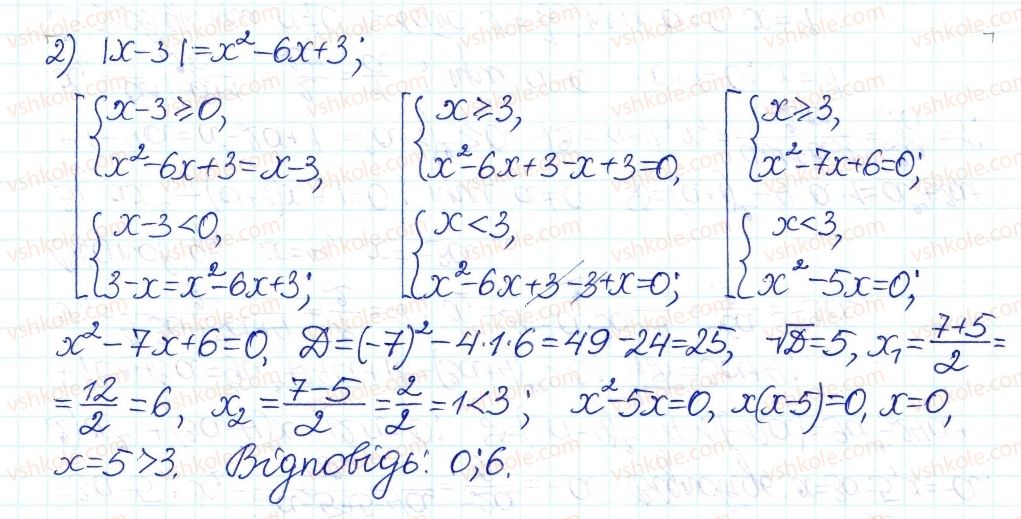 2) |x-3|=x²-6x+3;
[ { x-3≥0, [ { x≥3, [ { x≥3,
x²-6x+3=x-3, x²-6x+3-x+3=0, x²-7x+6=0;
{ x-3<0, { x<3, { x<3,
3-x=x²-6x+3; x²-6x+3-3+x=0; x²-5x=0;
x²-7x+6=0, D=(-7)²-4·1·6=49-24=25, √D=5, x₁=\frac{7+5}{2}=
=\frac{12}{2}=6, x₂=\frac{7-5}{2}=\frac{2}{2}=1<3; x²-5x=0, x(x-5)=0, x=0,
x=5>3. Відповідь: 0; 6.
vshkole.com